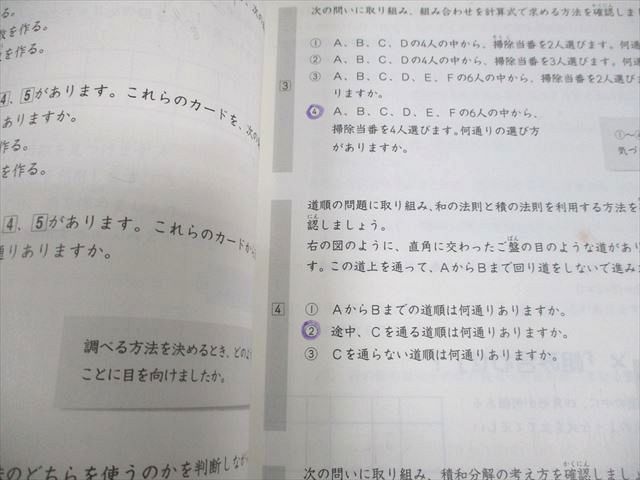 る。
数を作る。
を作る。
4、5があります。これらのカードを、次の
ありますか。
作る。
を作る。
4、5があります。これらのカードから
通りありますか。
調べる方法を決めるとき、どのよ
ことに目を向けましたか。
のどちらを使うのかを判断しなが
次の問いに取り組み、組み合わせを計算式で求める方法を確認しまし
3
① A、B、C、Dの4人の中から、掃除当番を2人選びます。何通
② A、B、C、Dの4人の中から、掃除当番を3人選びます。何通
③ A、B、C、D、E、Fの6人の中から、掃除当番を2人選び
りますか。
④ A、B、C、D、E、Fの6人の中から、
掃除当番を4人選びます。何通りの選び方
がありますか。
①〜
気づ
4
道順の問題に取り組み、和の法則と積の法則を利用する方法を
認しましょう。
右の図のように、直角に交わったご盤の目のような道があり
す。この道上を通って、AからBまで回り道をしないで進み
① AからBまでの道順は何通りありますか。
② 途中、Cを通る道順は何通りありますか。
③ Cを通らない道順は何通りありますか。
次の問いに取り組み、積和分解の考え方を確認しまし